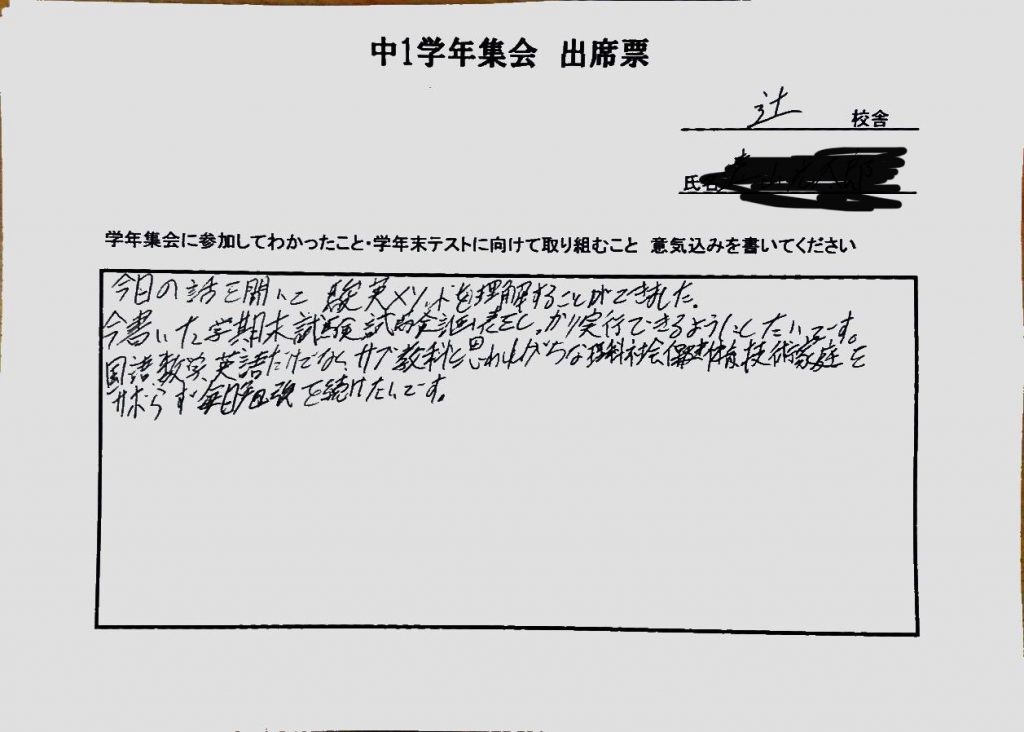 中1学年集会 出席票
辻 校舎
氏名
学年集会に参加してわかったこと・学年末テストに向けて取り組むこと 意気込みを書いてください
今日の話を聞いて 駿英メソッドを理解することができました。
今書いた学期末試験 試験計画表をしっかり実行できるようにしたいです。
国語 数学 英語だけでなく サブ教科と思われがちな理科社会保健体育技術家庭を
サボらず毎日勉強を続けたいです。